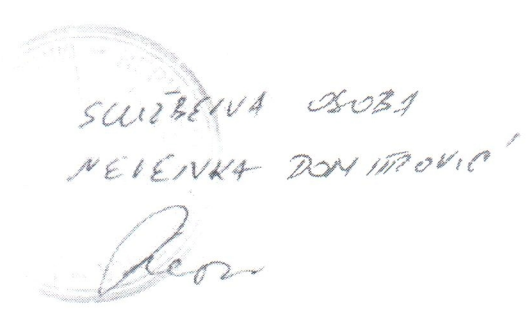 SLUŽBENA OSOBA
NEVENKA DOMITROVIĆ